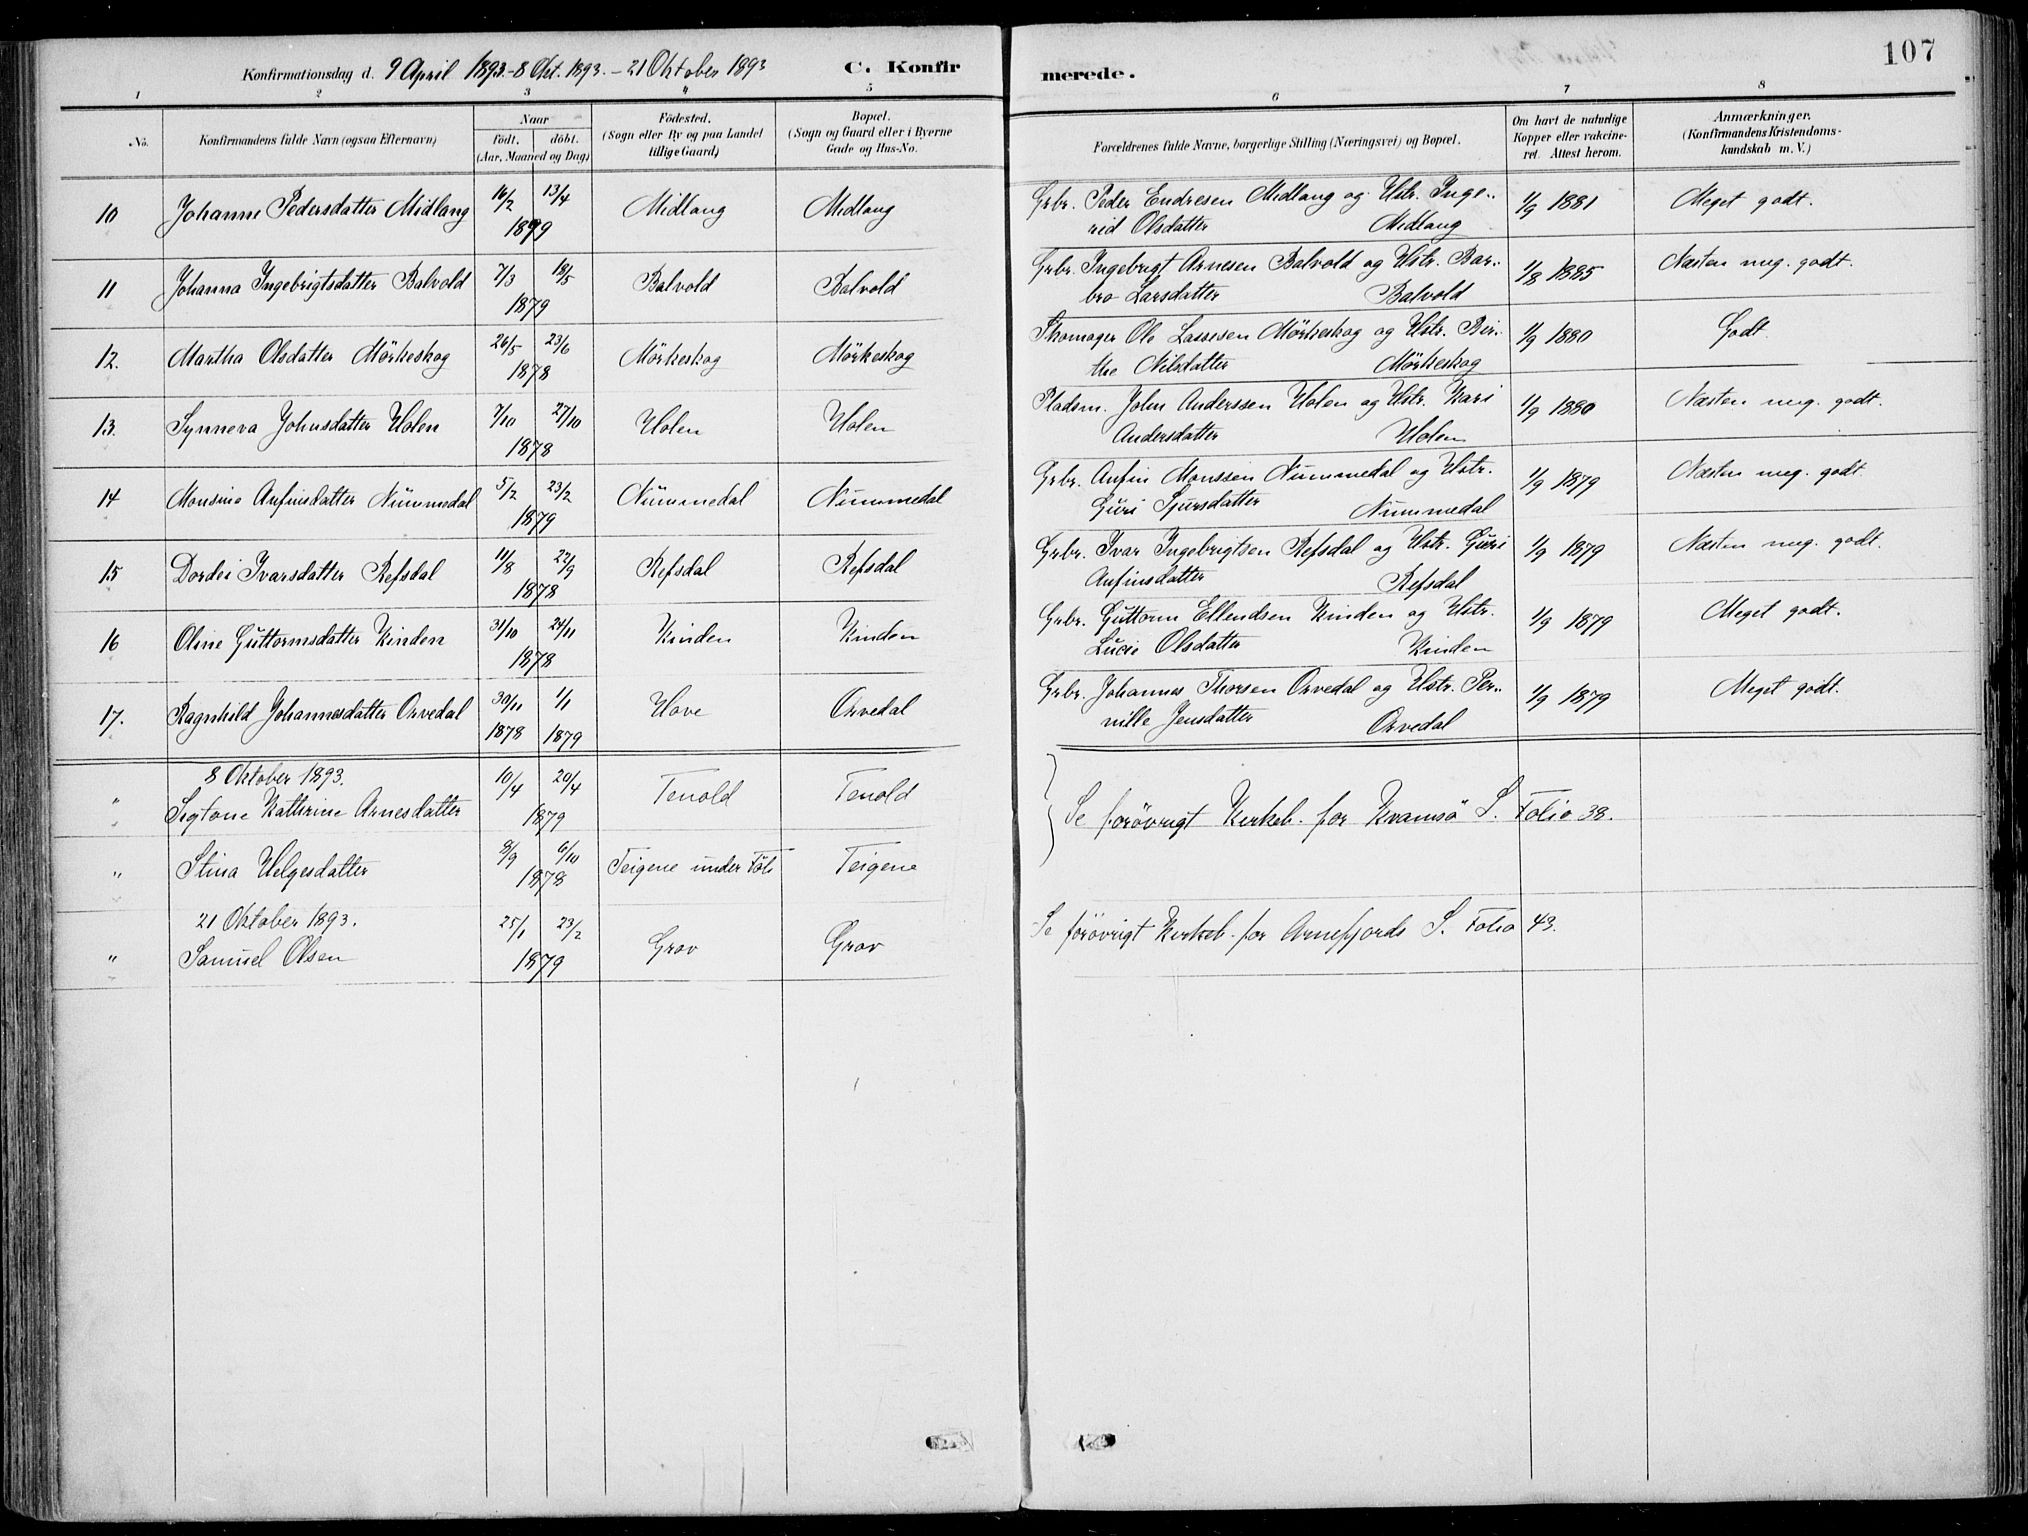 107
Konfirmationsdag d. 9 April 1893.-8 Okt. 1893. - 21 Oktober 1893 C. Konfirmerede.
1 2 3 4 5 6 7 8
No. Konfirmandens fulde Navn (ogsaa Efternavn) Naar födt. döbt. (Aar, Maaned og Dag) Födested. (Sogn eller By og paa Landet tillige Gaard) Bopæl. (Sogn og Gaard eller i Byerne Gade og Hus-No. Forældrenes fulde Navne, borgerlige Stilling (Næringsvei) og Bopæl. Om havt de naturlige Kopper eller vakcineret. Attest herom. Anmærkninger. (Konfirmandens Kristendomskundskab m. V.)
10 Johanne Pedersdatter Midlang 16/2 13/4 1879 Midlang Midlang Grbr. Peder Endresen Midlang og Hstr. Inge-
rid Olsdatter Midlang 1/9 1881 Meget godt.
11 Johanna Ingebrigtsdatter Balvold 7/3 18/5 1879 Balvold Balvold Grbr. Ingebrigt Arnesen Balvold og Hstr. Bar-
bro Larsdatter Balvold 1/8 1885 Næsten meg. godt.
12. Martha Olsdatter Mörkeskog 26/5 23/6 1878 Mörkeskog Mörkeskog Skomager Ole Lassesen Mörkeskog og Hstr. Bir-
the Nilsdatter Mörkeskog 1/9 1880 Godt.
13. Synneva Johnsdatter Holen 7/10 27/10 1878 Holen Holen Pladsm. John Anderssen Holen og Hstr. Kari
Andersdatter Holen 1/9 1880 Næsten meg. godt.
14 Monsine Anfinsdatter Nummedal 5/2 23/2 1879 Nummedal Nummedal Grbr. Anfin Monssen Nummedal og Hstr.
Guri Sjursdatter Nummedal 1/9 1879 Næsten meg. godt.
15 Dordei Ivarsdatter Refsdal 11/8 22/9 1878 Refsdal Refsdal Grbr. Ivar Ingebrigtsen Refsdal og Hstr. Guri
Anfinsdatter Refsdal 1/9 1879 Næsten meg. godt.
16 Oline Guttormsdatter Kinden 31/10 24/11 1878 Kinden Kinden Grbr. Guttorm Ellendsen Kinden og Hstr.
Lucie Olsdatter Kinden 1/9 1879 Meget godt.
17. Ragnhild Johannesdatter Orvedal 30/11 1878 1/1 1879 Hove Orvedal Grbr. Johannes Thorsen Orvedal og Hstr. Per-
nille Jensdatter Orvedal 1/9 1879 Meget godt.
8 Oktober 1893.
" Sigtone Kathrine Arnesdatter 10/4 20/4 1879 Tenold Tenold Se forövrigt Kirkeb. for Kvamsö S. Folio 38.
" Stina Helgesdatter 8/9 6/10 1878 Teigene under Föli Teigene
21 Oktober 1893.
" Samuel Olsen 25/1 23/2 1879 Grov Grov Se forövrigt Kirkeb. for Arnefjords S. Folio 43.